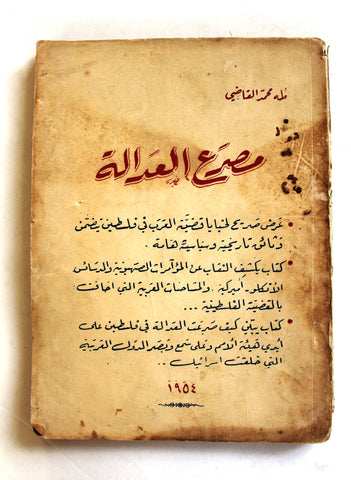 طه محمد القاضي
مصرع العدالة
• عرض صريح لخبايا قضية العرب في فلسطين يتضمن
وثائق تاريخية وسياسية هامة.
• كتاب يكشف النقاب عن المؤآمرات الصهيونية والدسائس
الانكلو أميركية. والملابسات العربية التي احاقت
بالقضية الفلسطينية ...
• كتاب يبين كيف صرعت العدالة في فلسطين على
أيدي هيئة الامم وعلى سمع وبصر الدول الغربية
التي خلقت اسرائيل ..
١٩٥٤